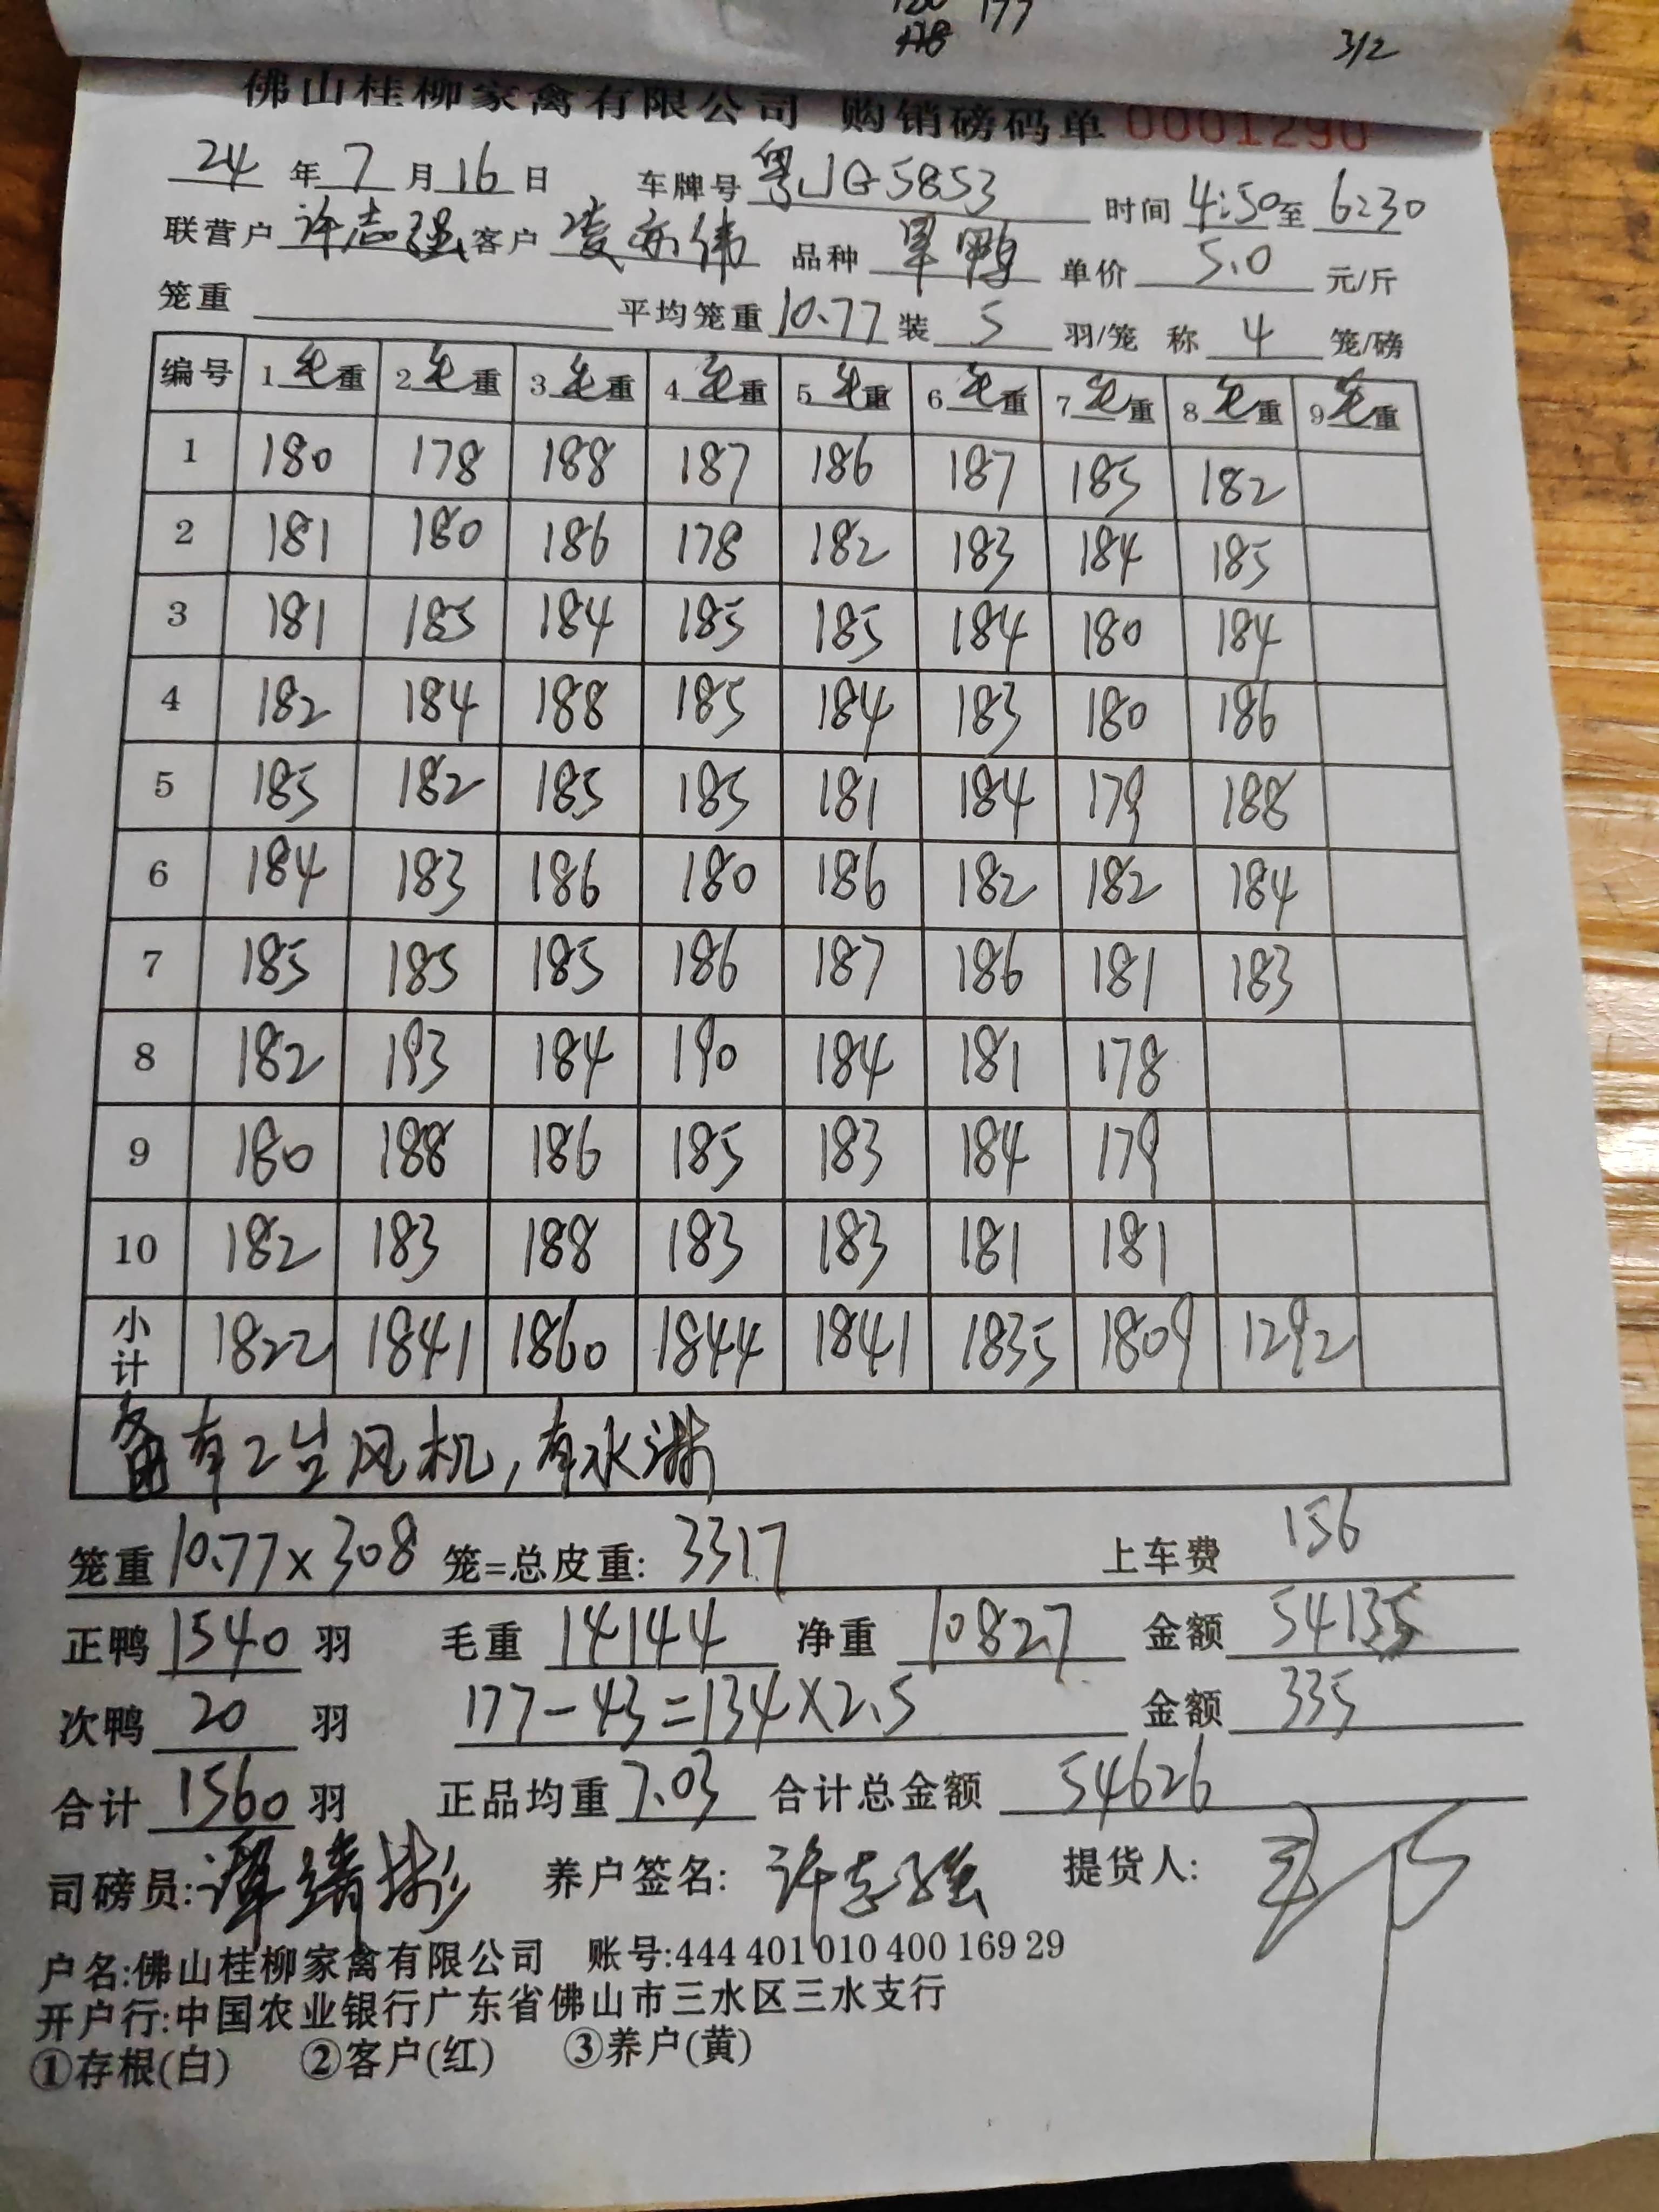 177
312
佛山桂柳家禽有限公司 购销磅码单 0001290
24 年 7 月 16 日 车牌号 粤JG5853 时间 4:50 至 6:30
联营户 许志强 客户 凌亦伟 品种 旱鸭 单价 5.0 元/斤
笼重 平均笼重 10.77 装 5 羽/笼 称 4 笼/磅
编号 1 毛重 2 毛重 3 毛重 4 毛重 5 毛重 6 毛重 7 毛重 8 毛重 9 毛重
1 180 178 188 187 186 187 185 182
2 181 180 186 178 182 183 184 185
3 181 185 184 185 185 184 180 184
4 182 184 188 185 184 183 180 186
5 185 182 185 185 181 184 179 188
6 184 183 186 180 186 182 182 184
7 185 185 185 186 187 186 181 183
8 182 193 184 190 184 181 178
9 180 188 186 185 183 184 179
10 182 183 188 183 183 181 181
小计 1822 1841 1860 1844 1841 1835 1809 1292
备 有2台风机,有水淋
笼重 10.77×308 笼=总皮重: 3317 上车费 156
正鸭 1540 羽 毛重 14144 净重 10827 金额 54135
次鸭 20 羽 177-43=134×2.5 金额 335
合计 1560 羽 正品均重 7.03 合计总金额 54626
司磅员: 养户签名: 许志强 提货人:
户名:佛山桂柳家禽有限公司 账号:444 401 010 400 169 29
开户行:中国农业银行广东省佛山市三水区三水支行
①存根(白) ②客户(红) ③养户(黄)